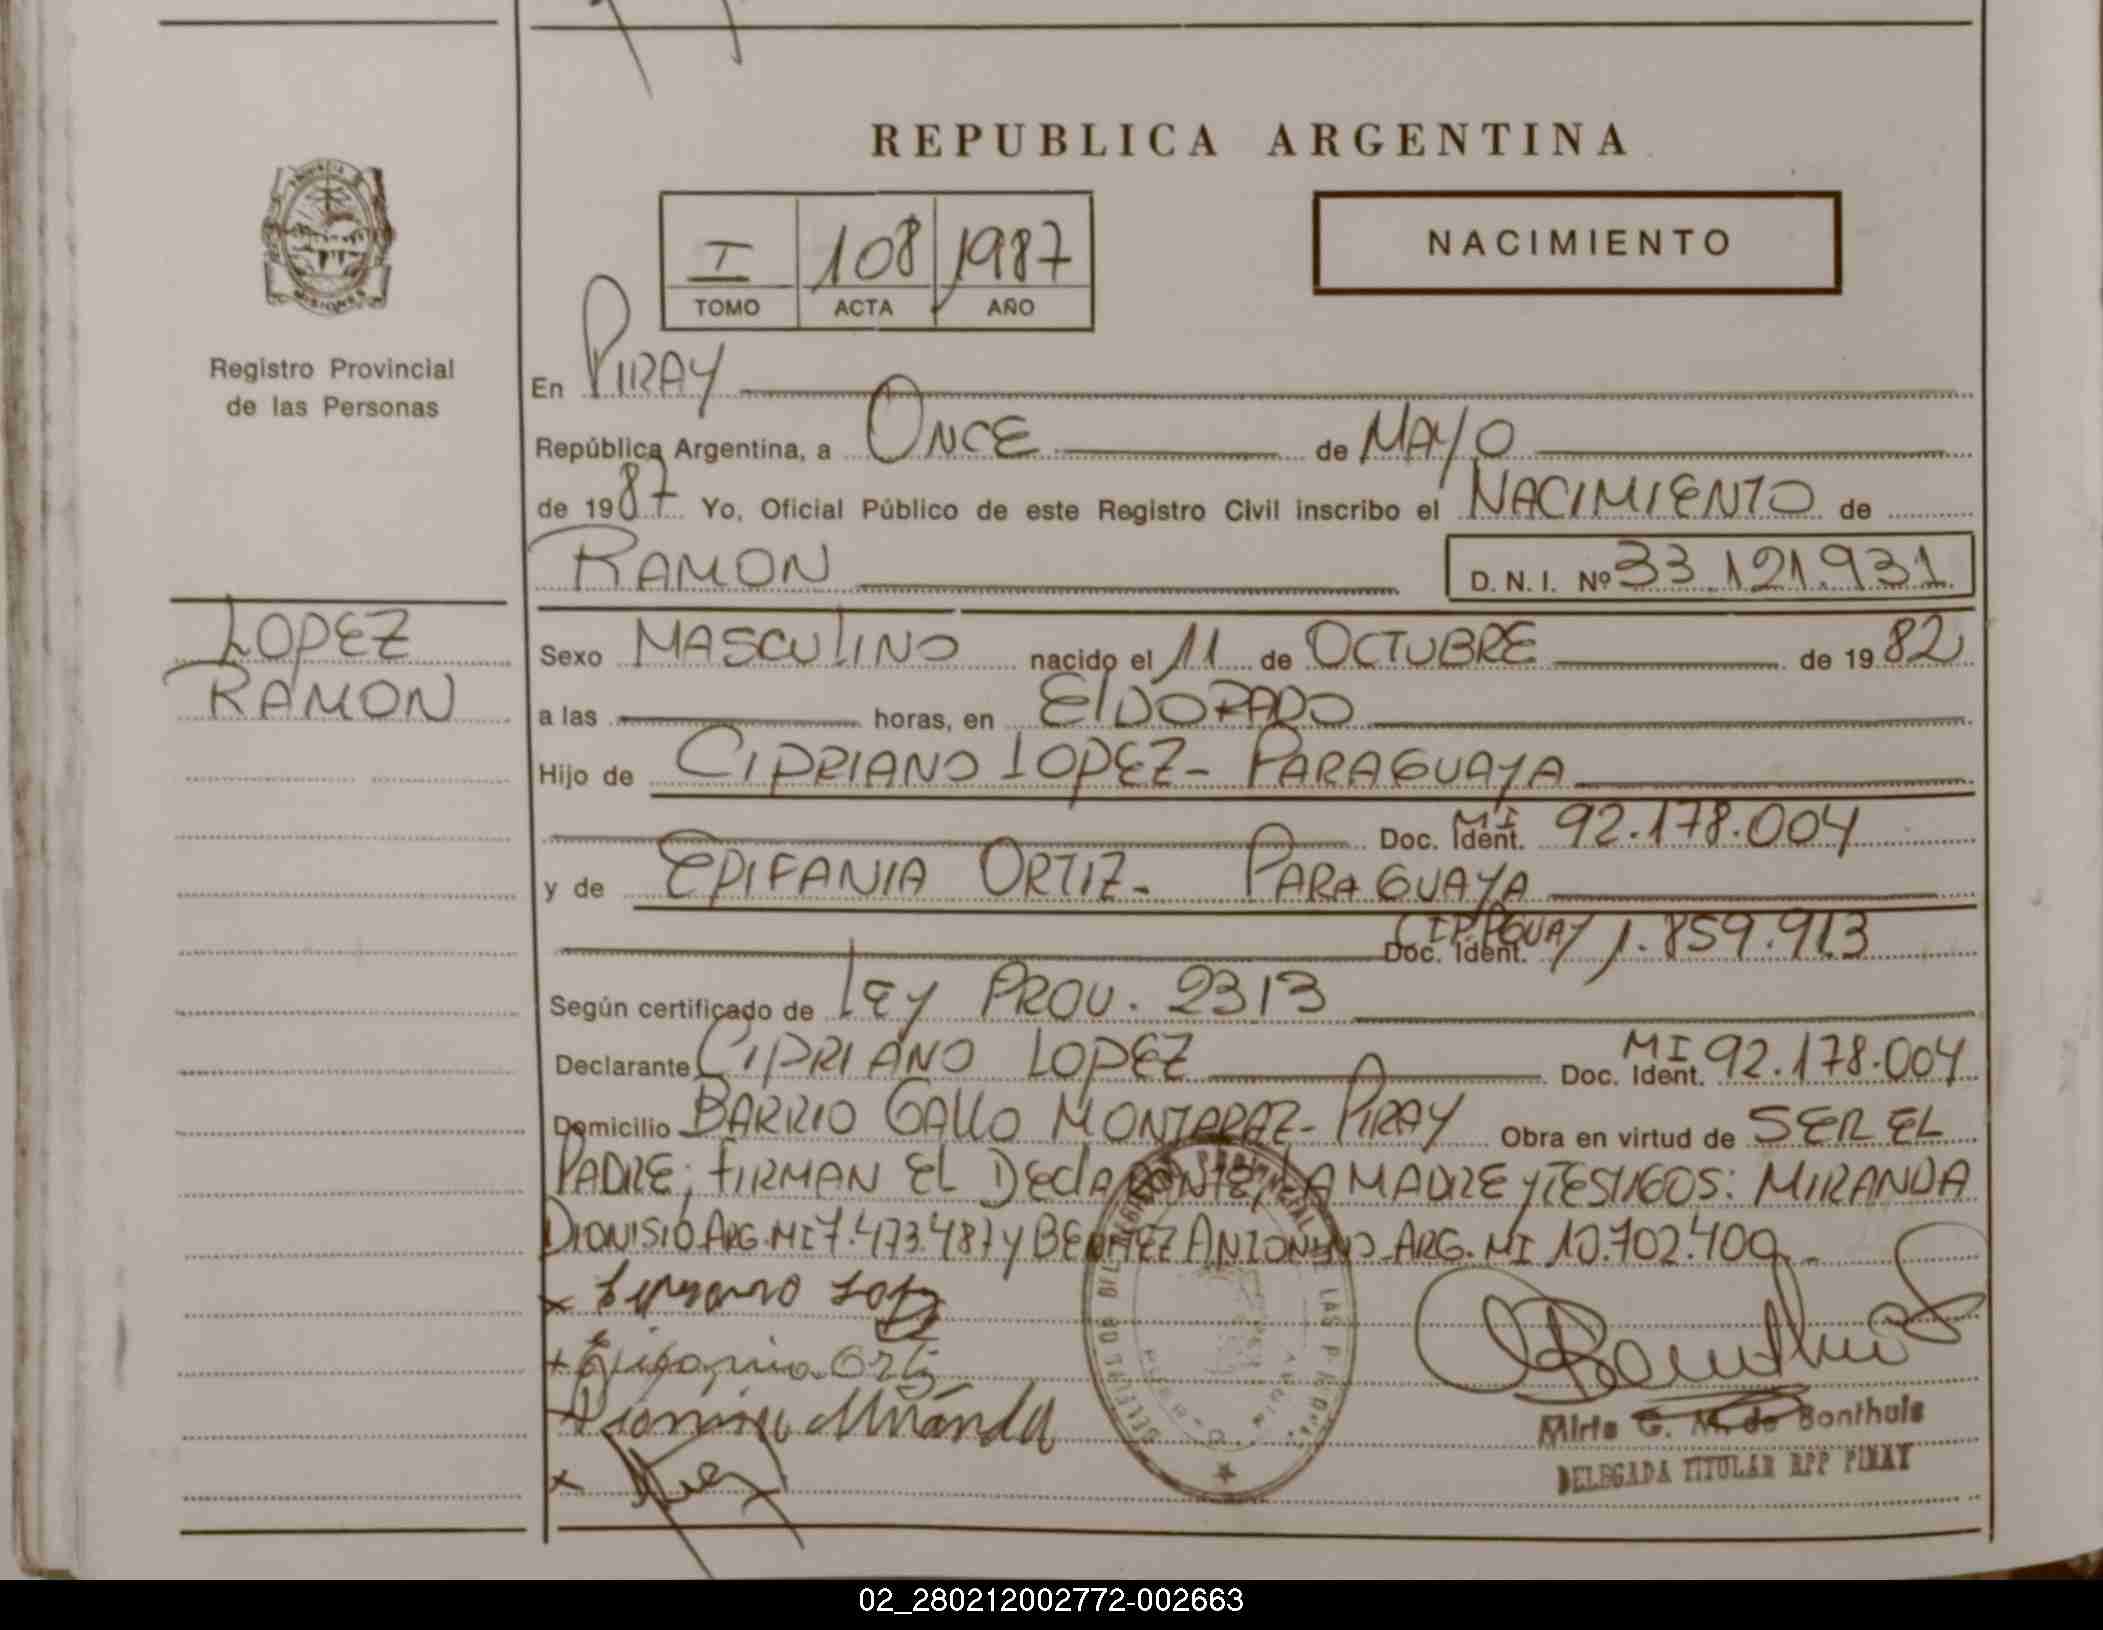 REPUBLICA ARGENTINA
NACIMIENTO
I 108 1987
TOMO ACTA AÑO
PROVINCIA DE MISIONES
Registro Provincial
de las Personas
LOPEZ
RAMON
En PIRAY
República Argentina, a ONCE de MAYO
de 1987 Yo, Oficial Público de este Registro Civil inscribo el NACIMIENTO de
RAMON D. N. I. Nº 33.121.931
Sexo MASCULINO nacido el 11 de OCTUBRE de 1982
a las horas, en ElDORADO
Hijo de CIPRIANO LOPEZ- PARAGUAYA
Doc. Ident. MI 92.178.004
y de EPIFANIA ORTIZ- PARAGUAYA
Doc. Ident. CIP.PGUAY 1.859.913
Según certificado de lEy PROV. 2313
Declarante CIPRIANO LOPEZ Doc. Ident. MI 92.178.004
Domicilio BARRIO GAllO MONTARAZ- PIRAY Obra en virtud de SER EL
PADRE; FIRMAN EL DEClARANTE, LA MADRE y TESTIGOS: MIRANDA
DIONISIO ARG. MI 7.473.487 y BENITEZ ANTONINO-ARG. MI 10.702.409-
x Lopez
+ Epifania Ortiz
Dionisio Miranda
x
DE LAS
Mirta G. M. de Bonthuis
DELEGADA TITULAR RPP PIRAY
02_280212002772-002663